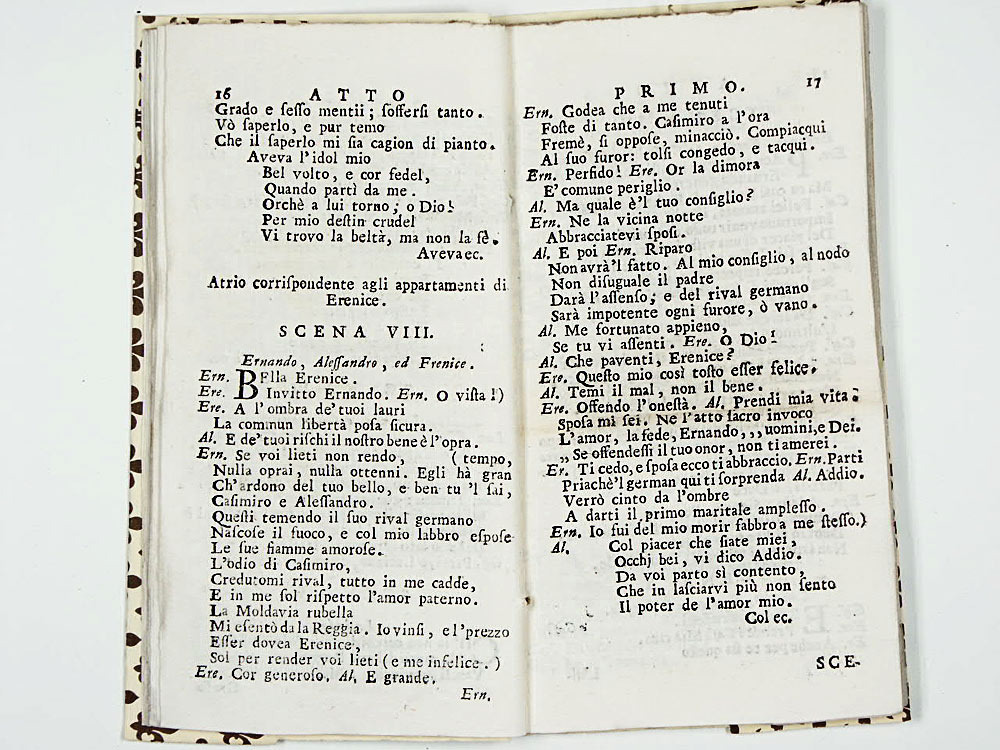 16 ATTO
Grado e sesso mentii; soffersi tanto.
Vò saperlo, e pur temo
Che il saperlo mi sia cagion di pianto.
Aveva l'idol mio
Bel volto, e cor fedel,
Quando partì da me.
Orchè a lui torno; o Dio!
Per mio destin crudel
Vi trovo la beltà, ma non la fè.
Aveva ec.
Atrio corrispondente agli appartamenti di
Erenice.
SCENA VIII.
Ernando, Alessandro, ed Frenice.
Ern. BElla Erenice.
Ere. Invitto Ernando. Ern. O vista!)
Ere. A l'ombra de' tuoi lauri
La commun libertà posa sicura.
Al. E de' tuoi rischi il nostro bene è l'opra.
Ern. Se voi lieti non rendo, (tempo,
Nulla oprai, nulla ottenni. Egli hà gran
Ch'ardono del tuo bello, e ben tu 'l sai,
Casimiro e Alessandro.
Questi temendo il suo rival germano
Nascose il fuoco, e col mio labbro espose
Le sue fiamme amorose.
L'odio di Casimiro,
Credutomi rival, tutto in me cadde,
E in me sol rispetto l'amor paterno.
La Moldavia rubella
Mi esentò da la Reggia. Io vinsi, e l'prezzo
Esser dovea Erenice,
Sol per render voi lieti (e me infelice.)
Ere. Cor generoso. Al. E grande.
Ern.
PRIMO. 17
Ern. Godea che a me tenuti
Foste di tanto. Casimiro a l'ora
Fremè, si oppose, minacciò. Compiacqui
Al suo furor: tolsi congedo, e tacqui.
Ern. Perfido! Ere. Or la dimora
E' comune periglio.
Al. Ma quale è'l tuo consiglio?
Ern. Ne la vicina notte
Abbracciatevi sposi.
Al. E poi Ern. Riparo
Non avrà'l fatto. Al mio consiglio, al nodo
Non disuguale il padre
Darà l'assenso; e del rival germano
Sarà impotente ogni furore, ò vano.
Al. Me fortunato appieno,
Se tu vi assenti. Ere. O Dio!
Al. Che paventi, Erenice?
Ere. Questo mio così tosto esser felice.
Al. Temi il mal, non il bene.
Ere. Offendo l'onestà. Al. Prendi mia vita:
Sposa mi sei. Ne l'atto sacro invoco
L'amor, la fede, Ernando, ,, uomini, e Dei.
,, Se offendessi il tuo onor, non ti amerei.
Er. Ti cedo, e sposa ecco ti abbraccio. Ern. Parti
Priachè'l german qui ti sorprenda Al. Addio.
Verrò cinto da l'ombre
A darti il primo maritale amplesso.
Ern. Io fui del mio morir fabbro a me stesso.)
Al. Col piacer che siate miei,
Occhj bei, vi dico Addio.
Da voi parto sì contento,
Che in lasciarvi più non sento
Il poter de l'amor mio.
Col ec.
SCE-